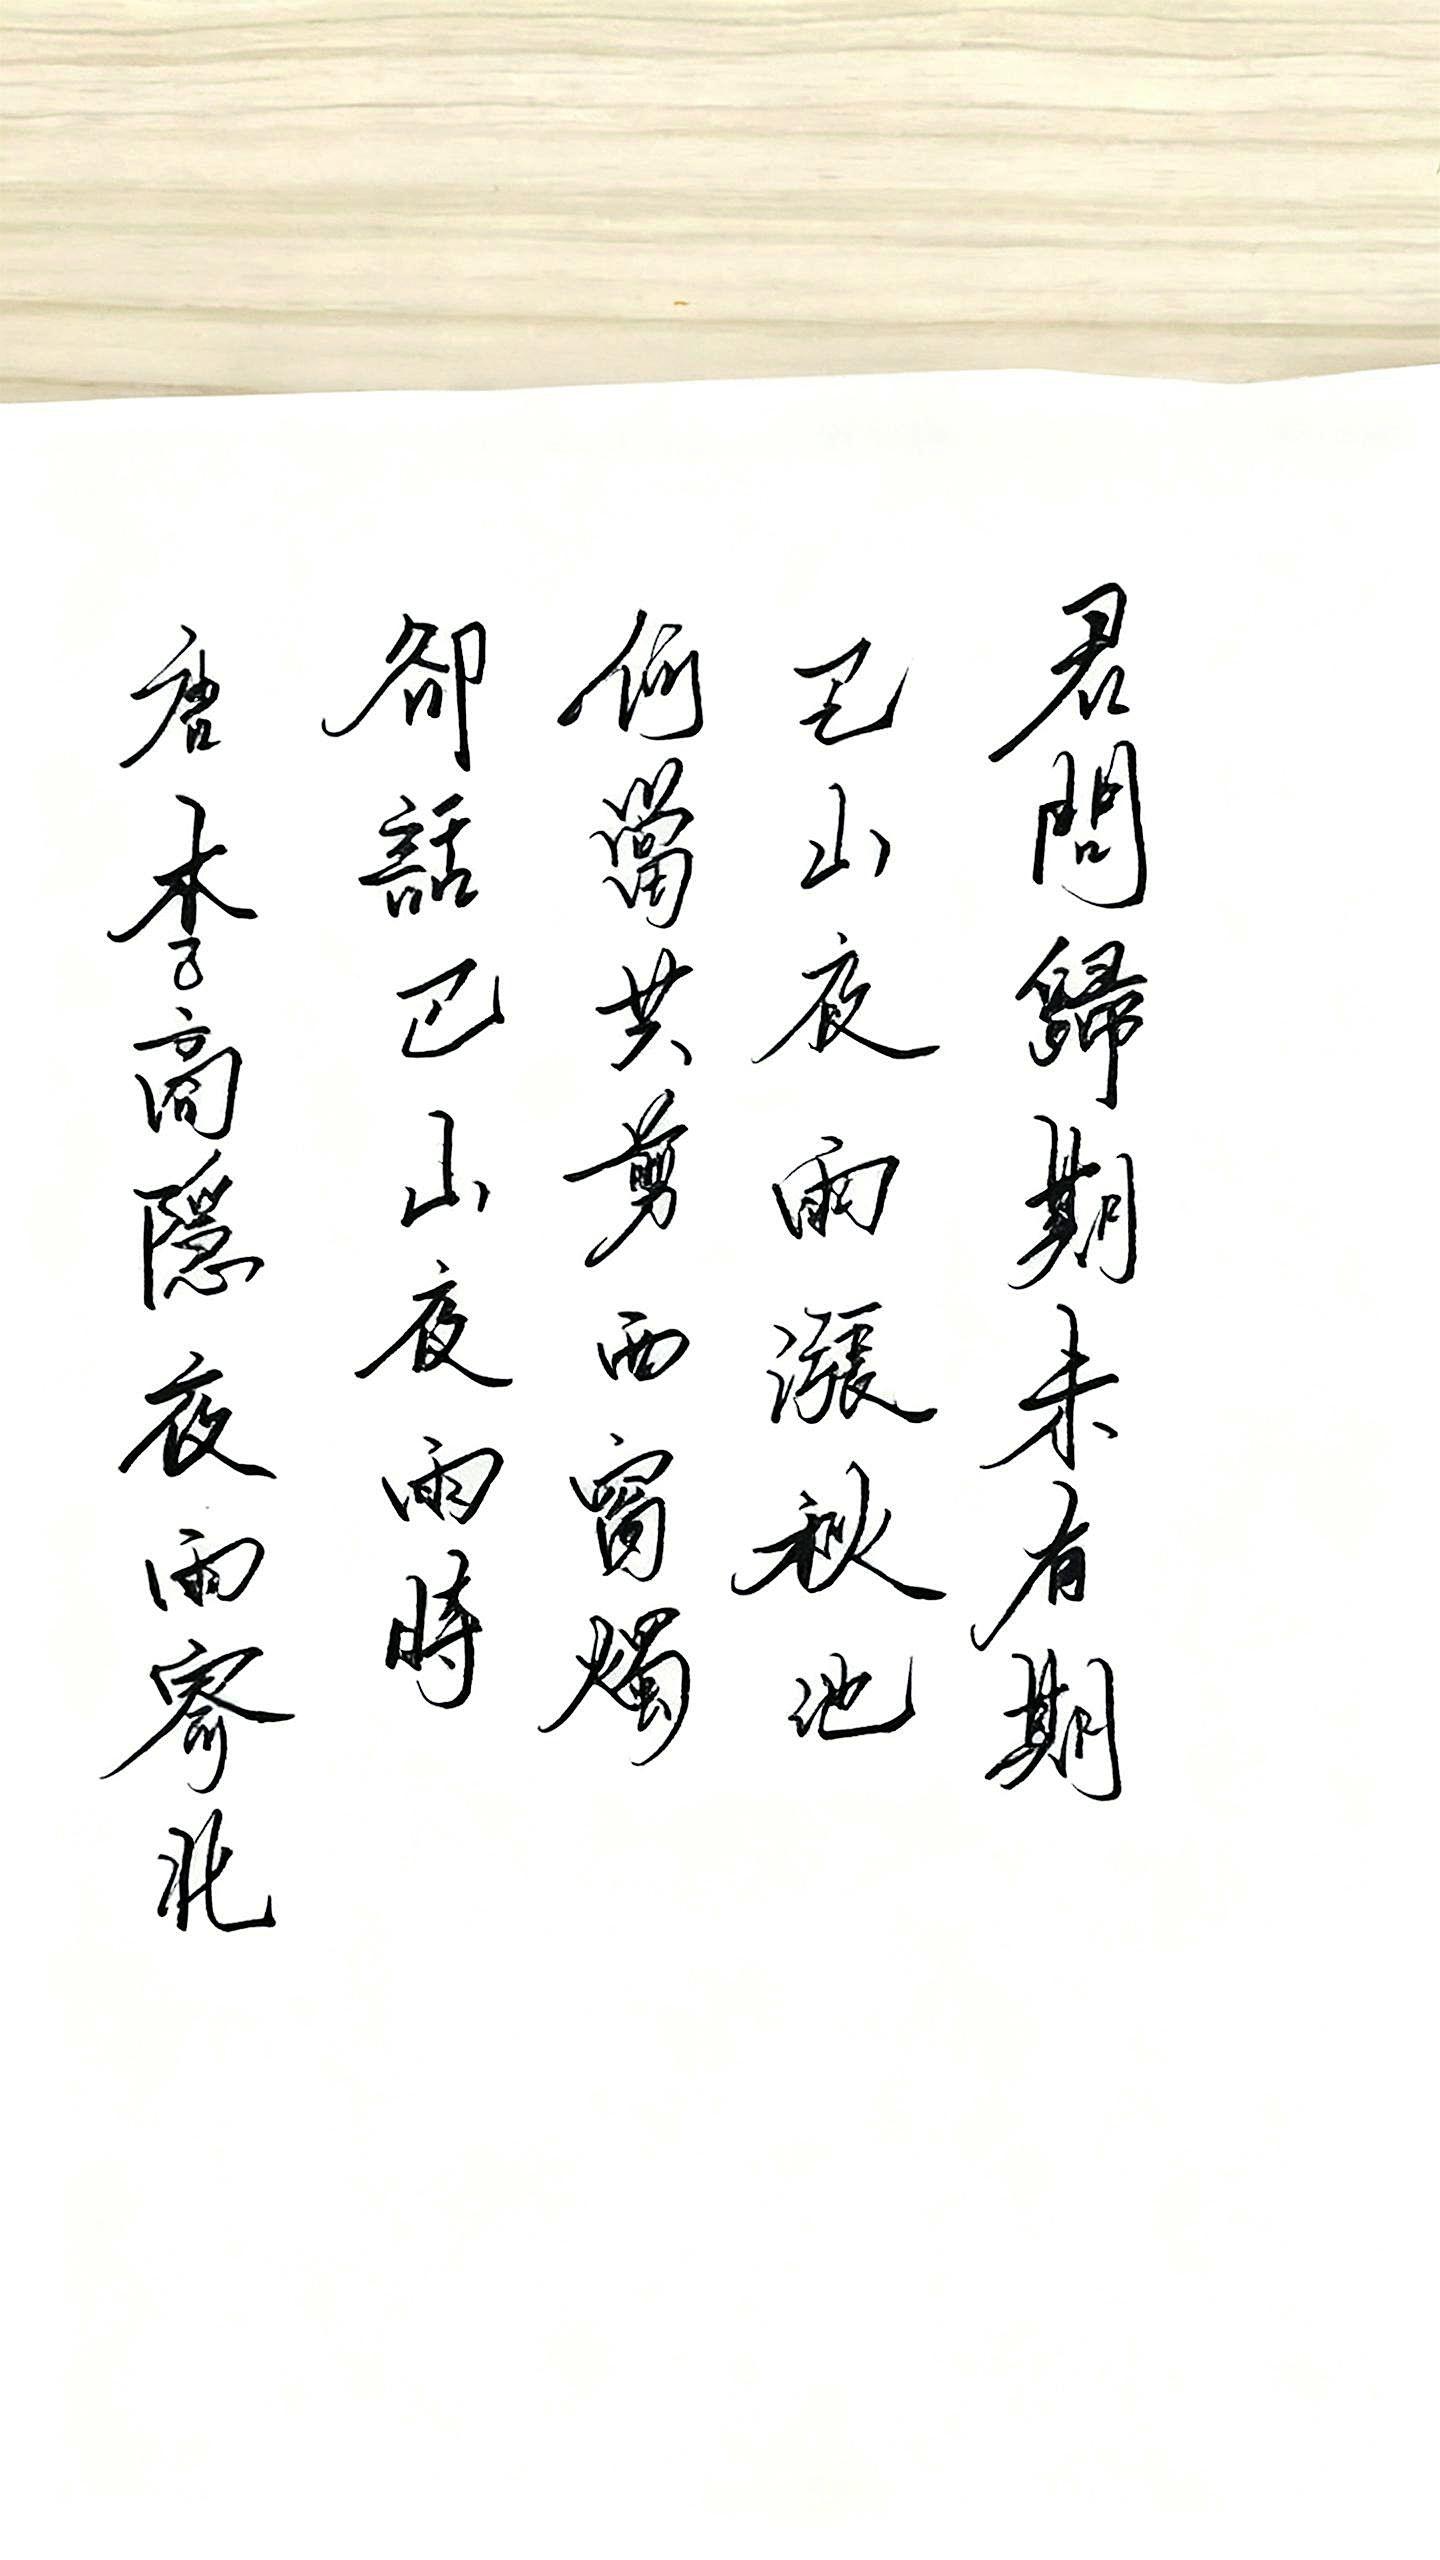 君問歸期未有期
巴山夜雨漲秋池
何當共剪西窗燭
卻話巴山夜雨時
唐李商隱夜雨寄北